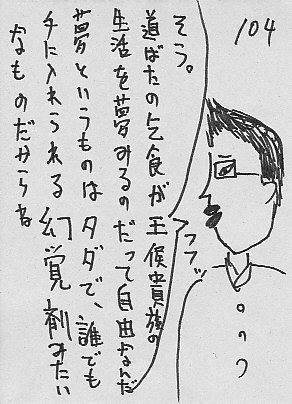 104
そう。
道ばたの乞食が王侯貴族の
生活を夢みるのだって自由なんだ
夢というものはタダで、誰でも
手に入れられる幻覚剤みたい
なものだからね
フフッ